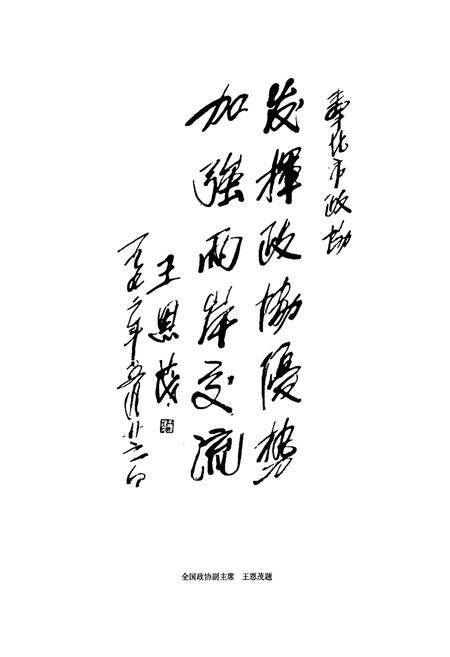 奉化市政协
发挥政协優势
加强两岸交流
王恩茂
一九九二年五月廿二日
全国政协副主席　王恩茂题